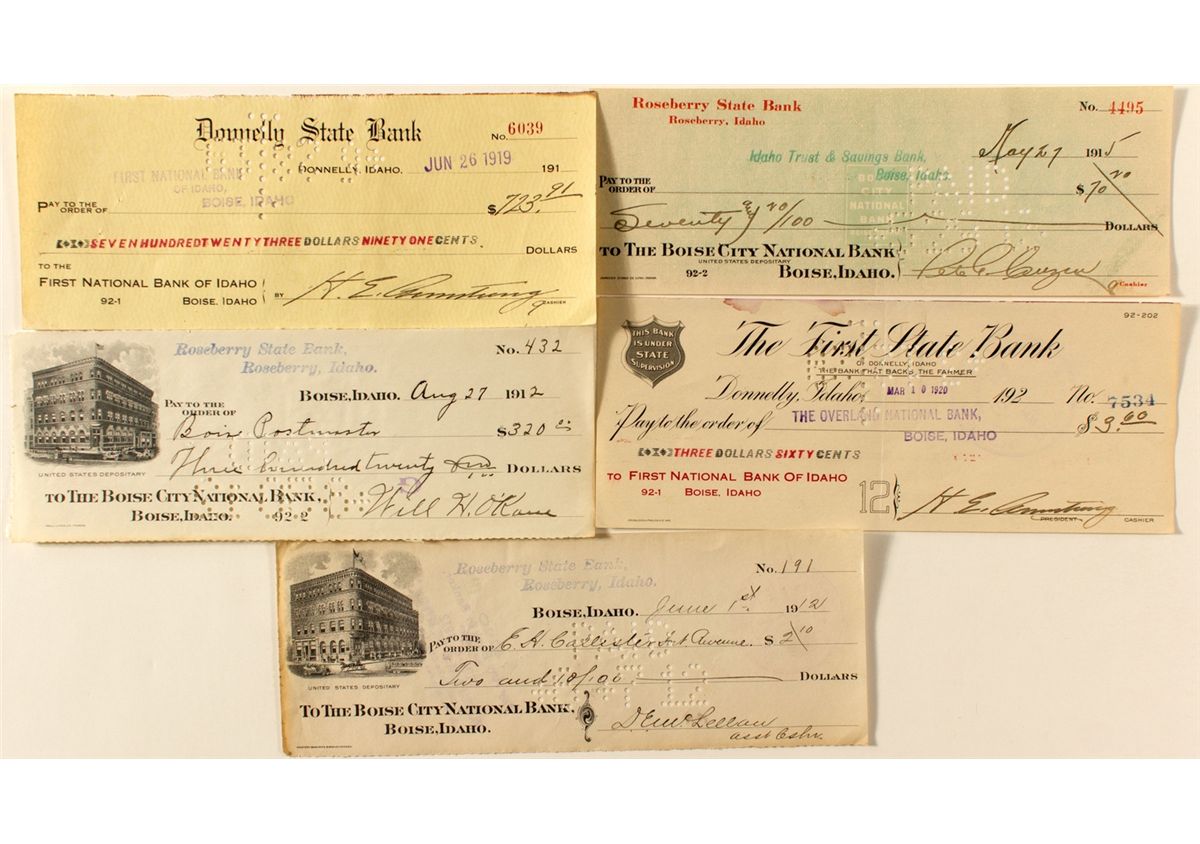 Donnelly State Bank
No. 6039
DONNELLY, IDAHO. JUN 26 1919 191
FIRST NATIONAL BANK
OF IDAHO,
BOISE, IDAHO
PAY TO THE
ORDER OF $723.91
SEVEN HUNDRED TWENTY THREE DOLLARS NINETY ONE CENTS
DOLLARS
TO THE
FIRST NATIONAL BANK OF IDAHO
92-1 BOISE, IDAHO
BY H. E. Armstrong
CASHIER
Roseberry State Bank
Roseberry, Idaho
No. 4495
May 27 1915
Idaho Trust & Savings Bank,
Boise, Idaho.
PAY TO THE
ORDER OF $70 20
BOISE
CITY
NATIONAL
BANK
Seventy & 20/100 DOLLARS
TO THE BOISE CITY NATIONAL BANK
UNITED STATES DEPOSITARY
92-2 BOISE, IDAHO.
Cashier
Roseberry State Bank,
Roseberry, Idaho.
No. 432
BOISE, IDAHO. Aug 27 1912
PAY TO THE
ORDER OF Boise Postmaster $320
Three hundred twenty DOLLARS
UNITED STATES DEPOSITARY
TO THE BOISE CITY NATIONAL BANK,
BOISE, IDAHO. 92-2
Will H. O'Kane
92-202
THIS BANK
IS UNDER
STATE
SUPERVISION
The First State Bank
OF DONNELLY, IDAHO
THE BANK THAT BACKS THE FARMER
Donnelly, Idaho, MAR 10 1920 192 No. 7534
Pay to the order of THE OVERLAND NATIONAL BANK, $3.60
BOISE, IDAHO
THREE DOLLARS SIXTY CENTS
TO FIRST NATIONAL BANK OF IDAHO
92-1 BOISE, IDAHO
12
H. E. Armstrong
PRESIDENT CASHIER
Roseberry State Bank,
Roseberry, Idaho.
No. 191
BOISE, IDAHO. June 1st 1912
PAY TO THE
ORDER OF E. H. Callister Int Revenue. $2 10
Two and 10/100 DOLLARS
UNITED STATES DEPOSITARY
TO THE BOISE CITY NATIONAL BANK,
BOISE, IDAHO.
D E McLellan
asst Cshr.